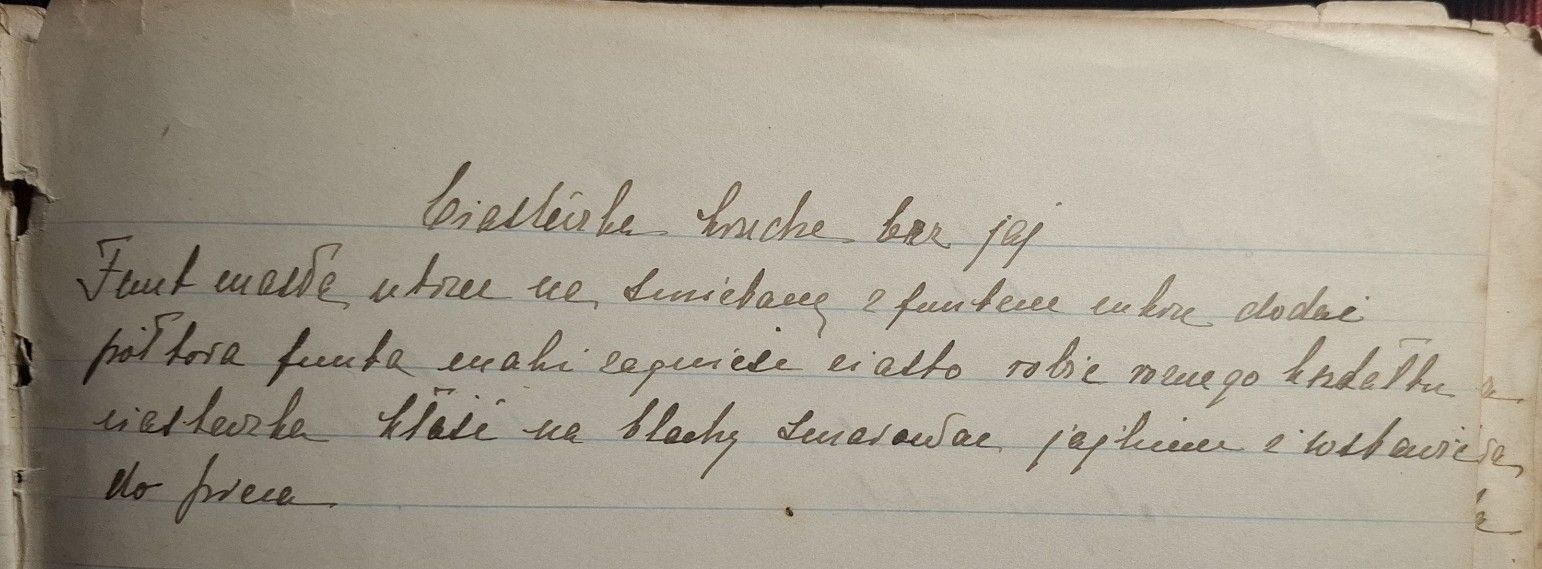 Ciasteczka kruche bez jaj
Funt masła utrzeć na śmietanę z funtem cukru dodać
półtora funta mąki zagnieść ciasto robić różnego kształtu
ciasteczka kłaść na blachę smarować jajkiem i wstawić
do pieca